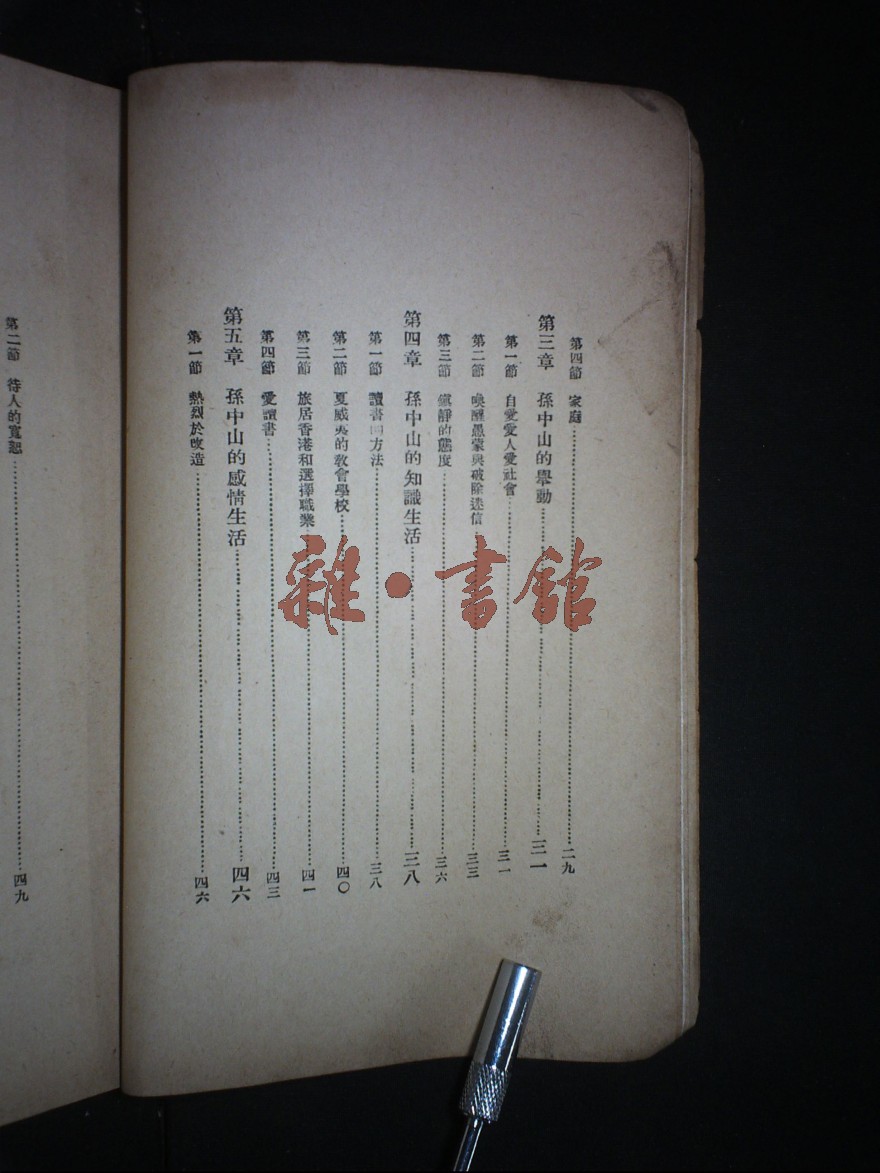 第四節 家庭……二九
第三章 孫中山的舉動……三一
第一節 自愛愛人愛社會……三一
第二節 喚醒愚蒙與破除迷信……三三
第三節 鎮靜的態度……三六
第四章 孫中山的知識生活……三八
第一節 讀書的方法……三八
第二節 夏威夷的教會學校……四〇
第三節 旅居香港和選擇職業……四一
第四節 愛讀書……四三
第五章 孫中山的感情生活……四六
第一節 熱烈於改造……四六
第二節 待人的寬恕……四九
雜·書館